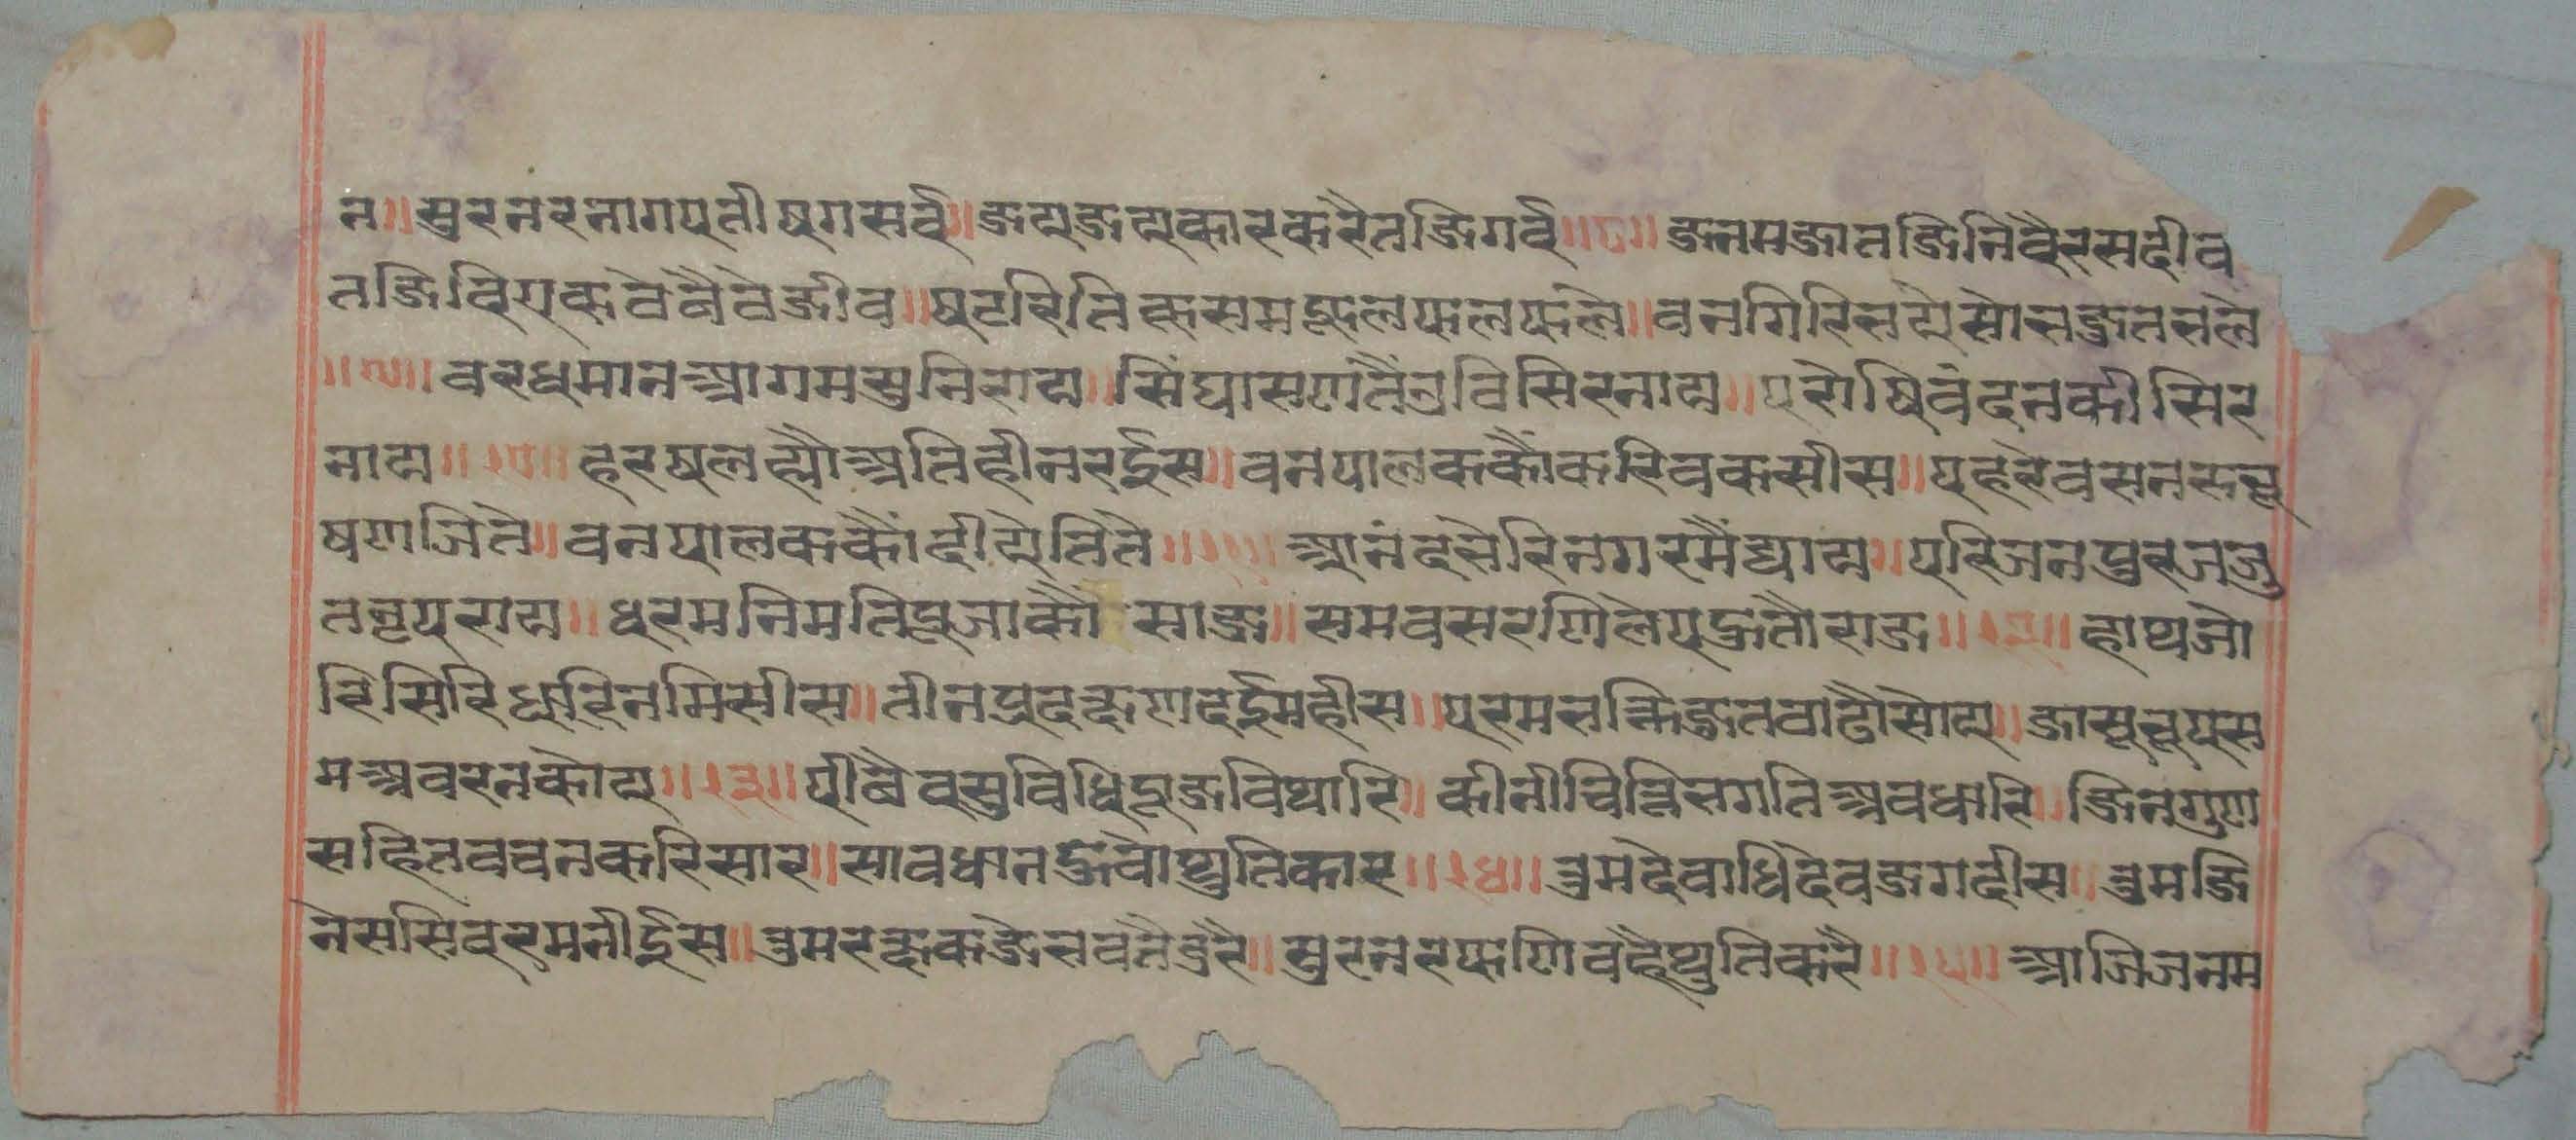 न॥सुरनरनागपतीषगसर्व॥जयजयकारकरैतजिगर्व॥८॥जनमजातजिनिवैरसदीव
तजिविगकवेवैवेजीव॥षटरितिकुसमफूलफलफले॥वनगिरिसये सोसजुतसले
॥९॥वरधमानआगमसुनिराय॥सिंघासणतैंत्रविसिरनाय॥परोषिवंदनकीसिर
नाय॥१०॥हरषलह्यौअतिहीनरईस॥वनपालककौंकरिवकसीस॥पहरेवसनसभू
षणजिते॥वनपालककौंदीयेतिते॥११॥आनंदभेरिनगरमैंद्याय॥परिजनपुरजनजु
तनृपराय॥धरमनिमतिपूजाकौ साज॥समवसरणिलेपहुतौराज॥१२॥हाथजो
रिसिरिधारिनमिसीस॥तीनप्रदक्षणादईमहीस॥परमभक्तिजुतवाढौसोय॥जासूनूपस
मअवरनकोय॥१३॥पीछैवसुविधिपूजविथारि॥कीनीचित्तिभगतिअवधारि॥जिनगुण
सहितवचनकरिसार॥सावधानह्वैवोथुतिकार॥१४॥तुमदेवाधिदेवजगदीस॥तुमजि
नेससिवरमनीईस॥तुमरक्षकजेभवतैडरै॥सुरनरफणिवहैथुतिकरै॥१५॥आजिजनम